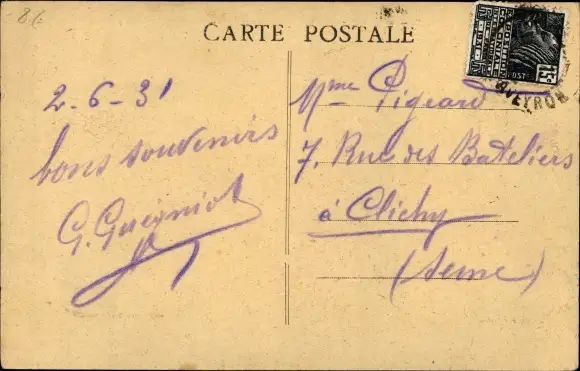 86
CARTE POSTALE
2-6-31
bons souvenirs
G. Gueyniot
Mme Pigeard
7, Rue des Bateliers
à Clichy
(Seine)
15c
POSTES
AVEYRON